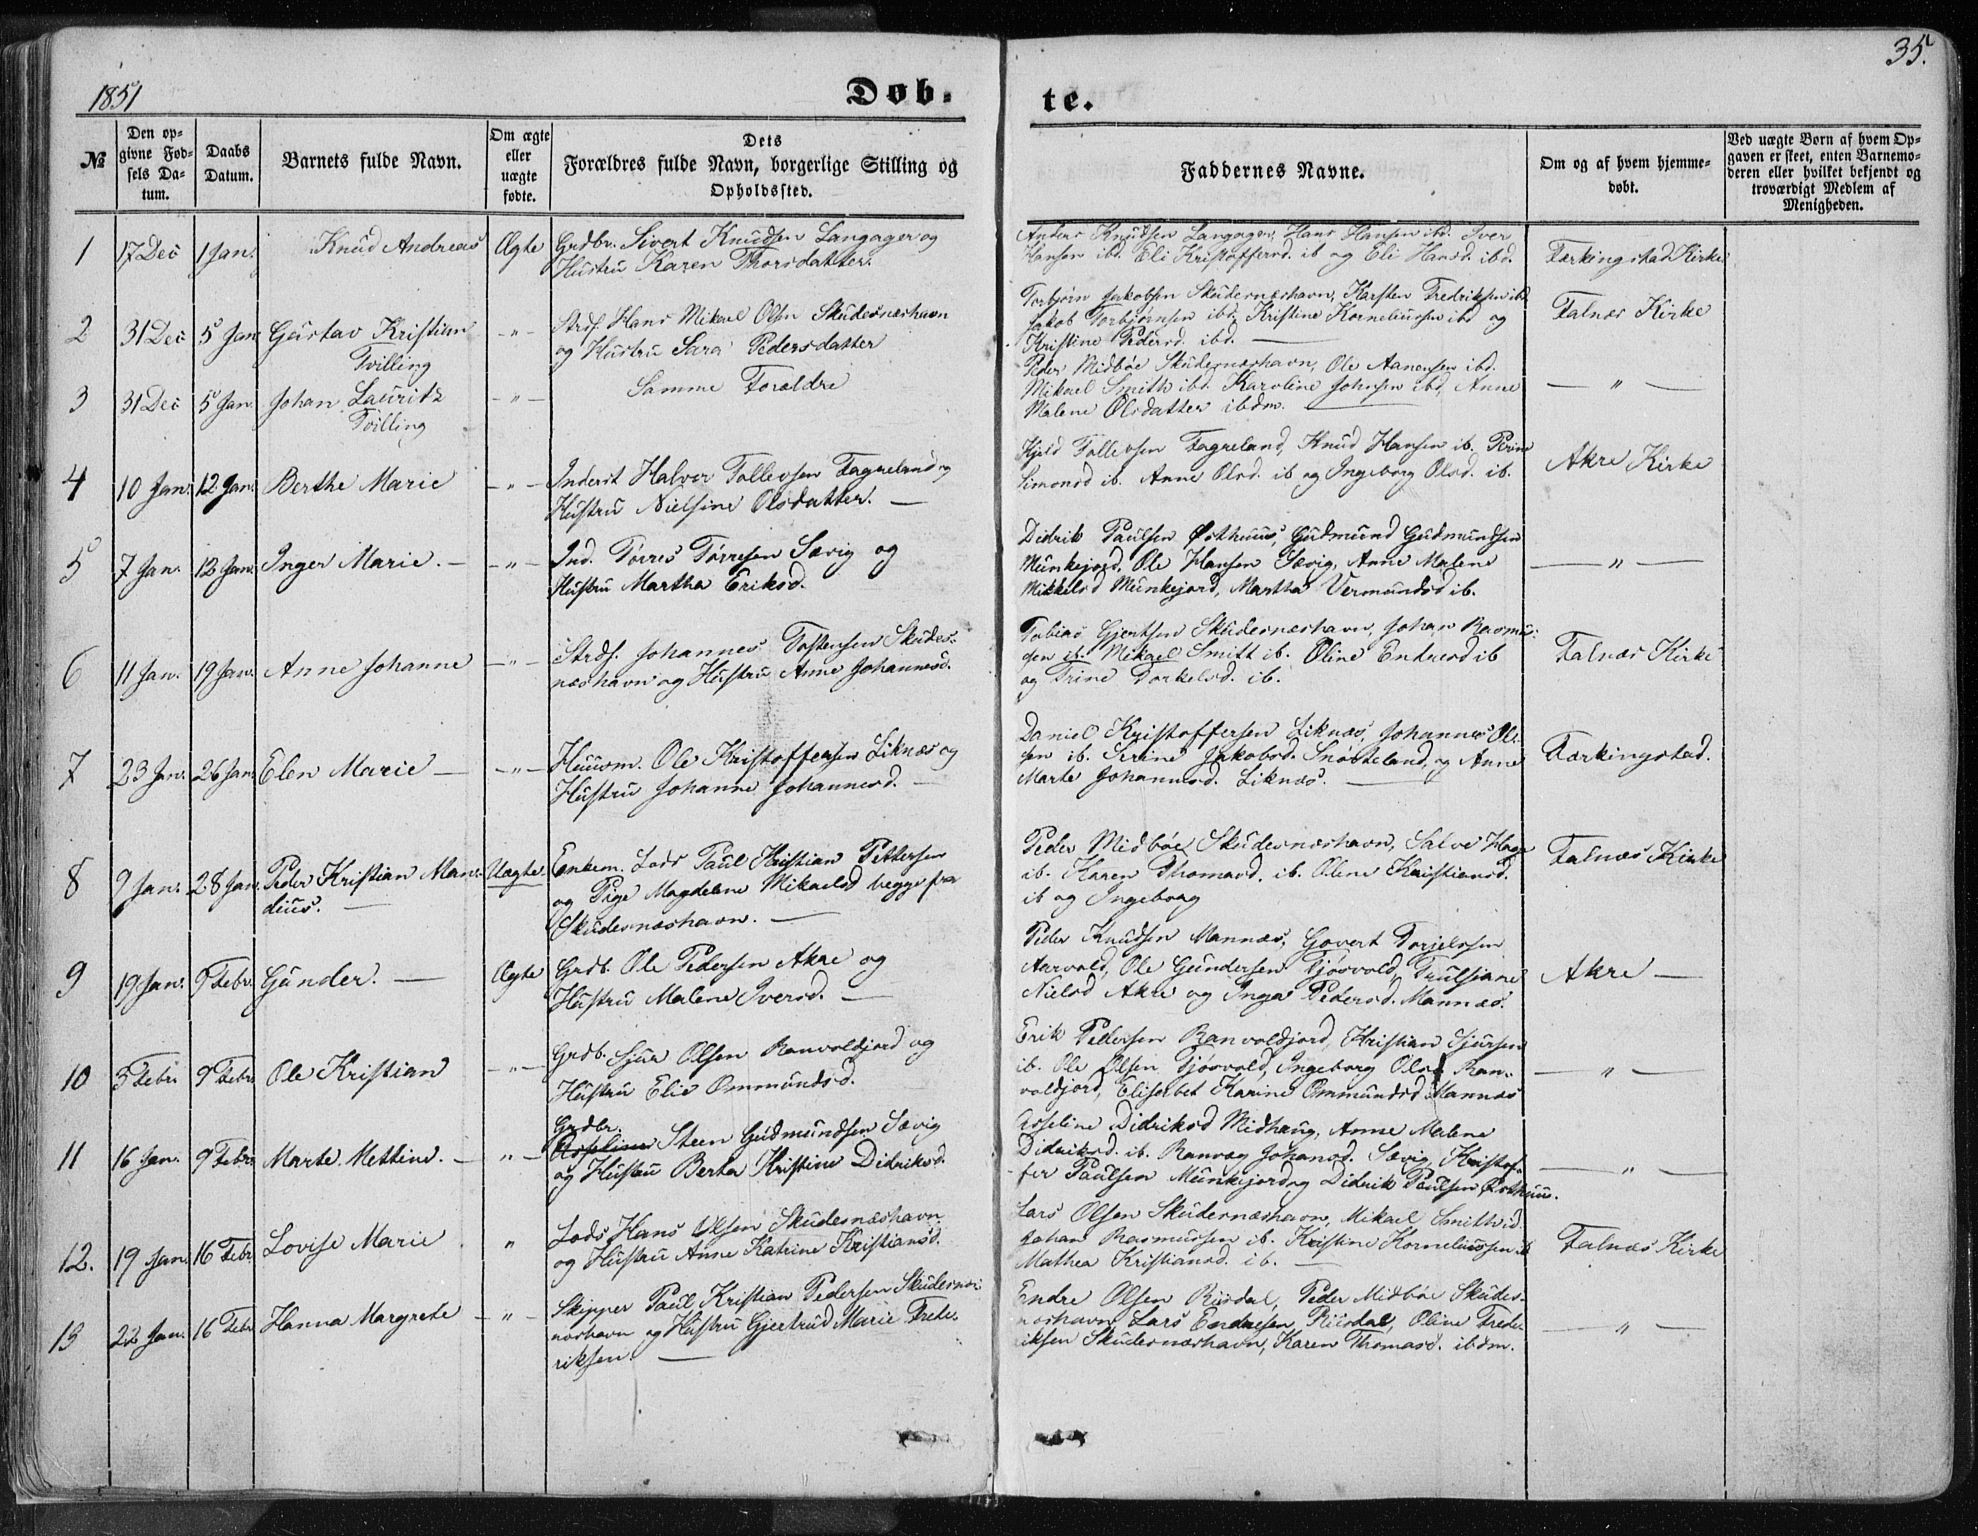 35.
1851
Døb-
te.
№
Den op-
givne Fød-
sels Da-
tum.
Daabs
Datum.
Barnets fulde Navn.
Om ægte
eller
uægte
fødte.
Dets
Forældres fulde Navn, borgerlige Stilling og
Opholdssted.
Faddernes Navne.
Om og af hvem hjemme-
døbt.
Ved uægte Børn af hvem Op-
gaven er skeet, enten Barnemo-
deren eller hvilket bekjendt og
troværdigt Medlem af
Menigheden.
1 17 Dec 1 Jan. Knud Andreas Ægte
Grdbr. Sivert Knudsen Langager og
Hustru Karen Thorsdatter.
Anders Knudsen Langager, Hans Hansen ibd. Iver
Hansen ibd. Eli Kristoffersd. ib og Eli Hansd. ibd.
Færkingstad Kirke
2 31 Dec 5 Jan Gustav Kristian — " —
Tvilling
Strds. Hans Mikael Olsen Skudesnæshavn
og Hustru Sara Pedersdatter
Torbjørn Jakobsen Skudesnæshavn, Karsten Fredriksen ibd.
Jakob Torbjørnsen ibd, Kristine Korneliussen ibd og
Kristine Pedersd. ibd. —
Falnæs Kirke
3 31 Dec 5 Jan. Johan Lauritz — " —
Tvilling
Samme Forældre
Peder Midbøe Skudesnæshavn, Ole Aanensen ibd.
Mikael Smith ibd. Karoline Johnsen ibd, Anne
Malene Olsdatter ibdm.
— " —
4 10 Jan. 12 Jan. Berthe Marie — " —
Inderst Halvor Tollevsen Fagreland og
Hustru Nielsine Olsdatter. —
Kjeld Tollevsen Fagreland, Knud Hansen ib. Perine
Simonsd ib. Anne Olsd. ib og Ingeborg Olsd. ib.
Akre Kirke
5 7 Jan. 12 Jan. Inger Marie. — — " —
Ind. Tørres Tørresen Sævig og
Hustru Martha Eriksd.
Didrik Paulsen Østhuus, Gudmund Gudmundsen
Munkejord, Ole Hansen Sævig, Anne Malene
Mikkelsd Munkejord, Martha Vermundsd ib.
— " —
6 11 Jan. 19 Jan. Anne Johanne — " —
Strds. Johannes Tostensen Skudes-
næshavn og Hustru Anne Johannesd.
Tobias Gjertsen Skudesnæshavn, Johan Rasmus-
sen ib. Mikael Smitt ib. Oline Endresd ib
og Trine Torkelsd. ib.
Falnæs Kirke
7 23 Jan. 26 Jan. Elen Marie — — " —
Huusm. Ole Kristoffersen Liknæs og
Hustru Johanne Johannesd. —
Daniel Kristoffersen Liknæs, Johannes Ol-
sen ib. Serine Jakobsd. Snørteland, og Anne
Marte Johannesd. Liknæs. —
Færkingstad.
8 9 Jan. 28 Jan. Peder Kristian Man- Uægte
dius. —
Enkem. Lods Paul Kristian Pettersen
og Pige Magdelene Mikaelsd begge fra
Skudesnæshavn. —
Peder Midbøe Skudesnæshavn, Salve
ib. Karen Thomasd. ib. Olene Kristiansd.
ib og Ingeborg
Falnæs Kirke
9 19 Jan. 9 Febr. Gunder. — Ægte
Grdb. Ole Pedersen Akre og
Hustru Malene Iversd. —
Peder Knudsen Mannæs, Govert Torjelsen
Aarvold, Ole Gundersen Tjøsvold, Trulsiane
Nielsd Akre og Inger Pedersd. Mannæs.
Akre —
10 3 Febr. 9 Febr. Ole Kristian — " —
Grdb. Sjur Olsen Ranvoldjord og
Hustru Elie Ommundsd.
Erik Pedersen Ranvoldjord, Kristian Sjursen
ib. Ole Olsen Tjøsvold, Ingeborg Olsd Ran-
voldjord, Elisabet Karine Ommundsd Mannæs
— " —
11 16 Jan. 9 Febr. Marte Mettine. — — " —
Grdbr.
Steen Gudmundsen Sævig
og Hustru Berta Kristine Didriksd.
Asseline Didriksd Midhaug, Anne Malene
Didriksd. ib. Ranvæg Johansd. Sævig, Kristof-
fer Paulsen Munkejord og Didrik Paulsen Østhuus.
— " —
12. 19 Jan. 16 Febr. Lovise Marie "
Lods Hans Olsen Skudesnæshavn
og Hustru Anne Katrine Kristiansd.
Lars Olsen Skudesnæshavn, Mikael Smith id.
Johan Rasmussen ib. Kristine Korneliussen ib
Mathea Kristiansd. ib. —
Falnæs Kirke
13 22 Jan. 16 Febr Hanna Margrete — " —
Skipper Paul Kristian Pedersen Skudesnæs-
næshavn og Hustru Gjertrud Marie Frede-
riksen. —
Endre Olsen Risdal, Peder Midbøe Skudes-
næshavn, Lars Endresen Risdal, Oline Frede-
riksen Skudesnæshavn, Karen Thomasd. ibdm.
— " —